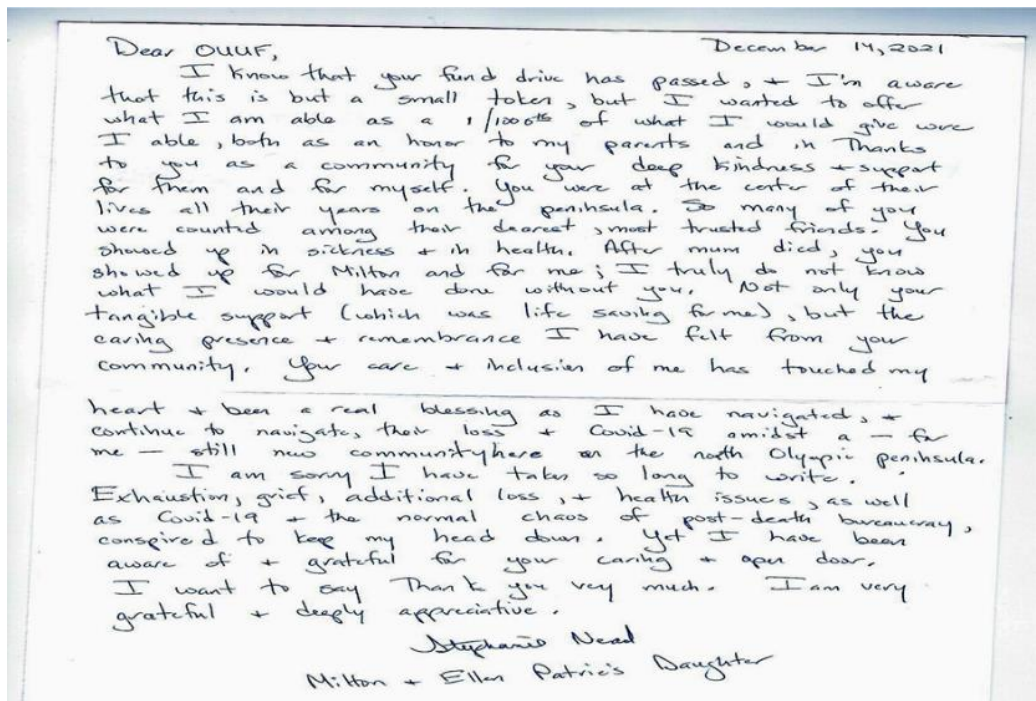 Dear OUUF, December 14, 2021
I know that your fund drive has passed, + I'm aware
that this is but a small token, but I wanted to offer
what I am able as a 1/100oths of what I would give were
I able, both as an honor to my parents and in Thanks
to you as a community for your deep kindness + support
for them and for myself. You were at the center of their
lives all their years on the peninsula. So many of you
were counted among their dearest, most trusted friends. You
showed up in sickness + in health. After mum died, you
showed up for Milton and for me; I truly do not know
what I would have done without you. Not only your
tangible support (which was life saving for me), but the
caring presence + remembrance I have felt from your
community. Your care + inclusion of me has touched my
heart + been a real blessing as I have navigated, +
continue to navigate, their loss + Covid-19 amidst a — for
me — still new community here on the north Olympic peninsula.
I am sorry I have taken so long to write.
Exhaustion, grief, additional loss, + health issues, as well
as Covid-19 + the normal chaos of post-death bureaucracy,
conspired to keep my head down. Yet I have been
aware of + grateful for your caring + open door.
I want to say Thank you very much. I am very
grateful + deeply appreciative.
Stephanie
Milton + Ellen Patrie's Daughter